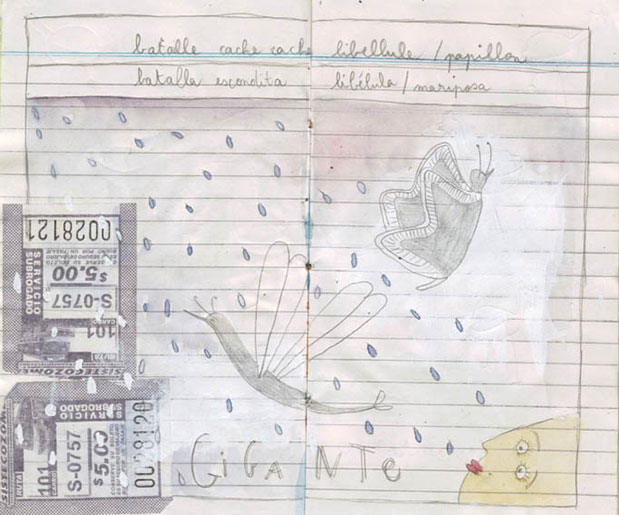 batalle cache cache libellule / papillon
batalla escondita libélula / mariposa
0028121
SERVICIO
SUBROGADO
$5.00
S-0757
101
SISTECOZOME
SERVICIO
SUBROGADO
101
S-0757
$5.00
0028120
SISTECOZOME
GiGANTe